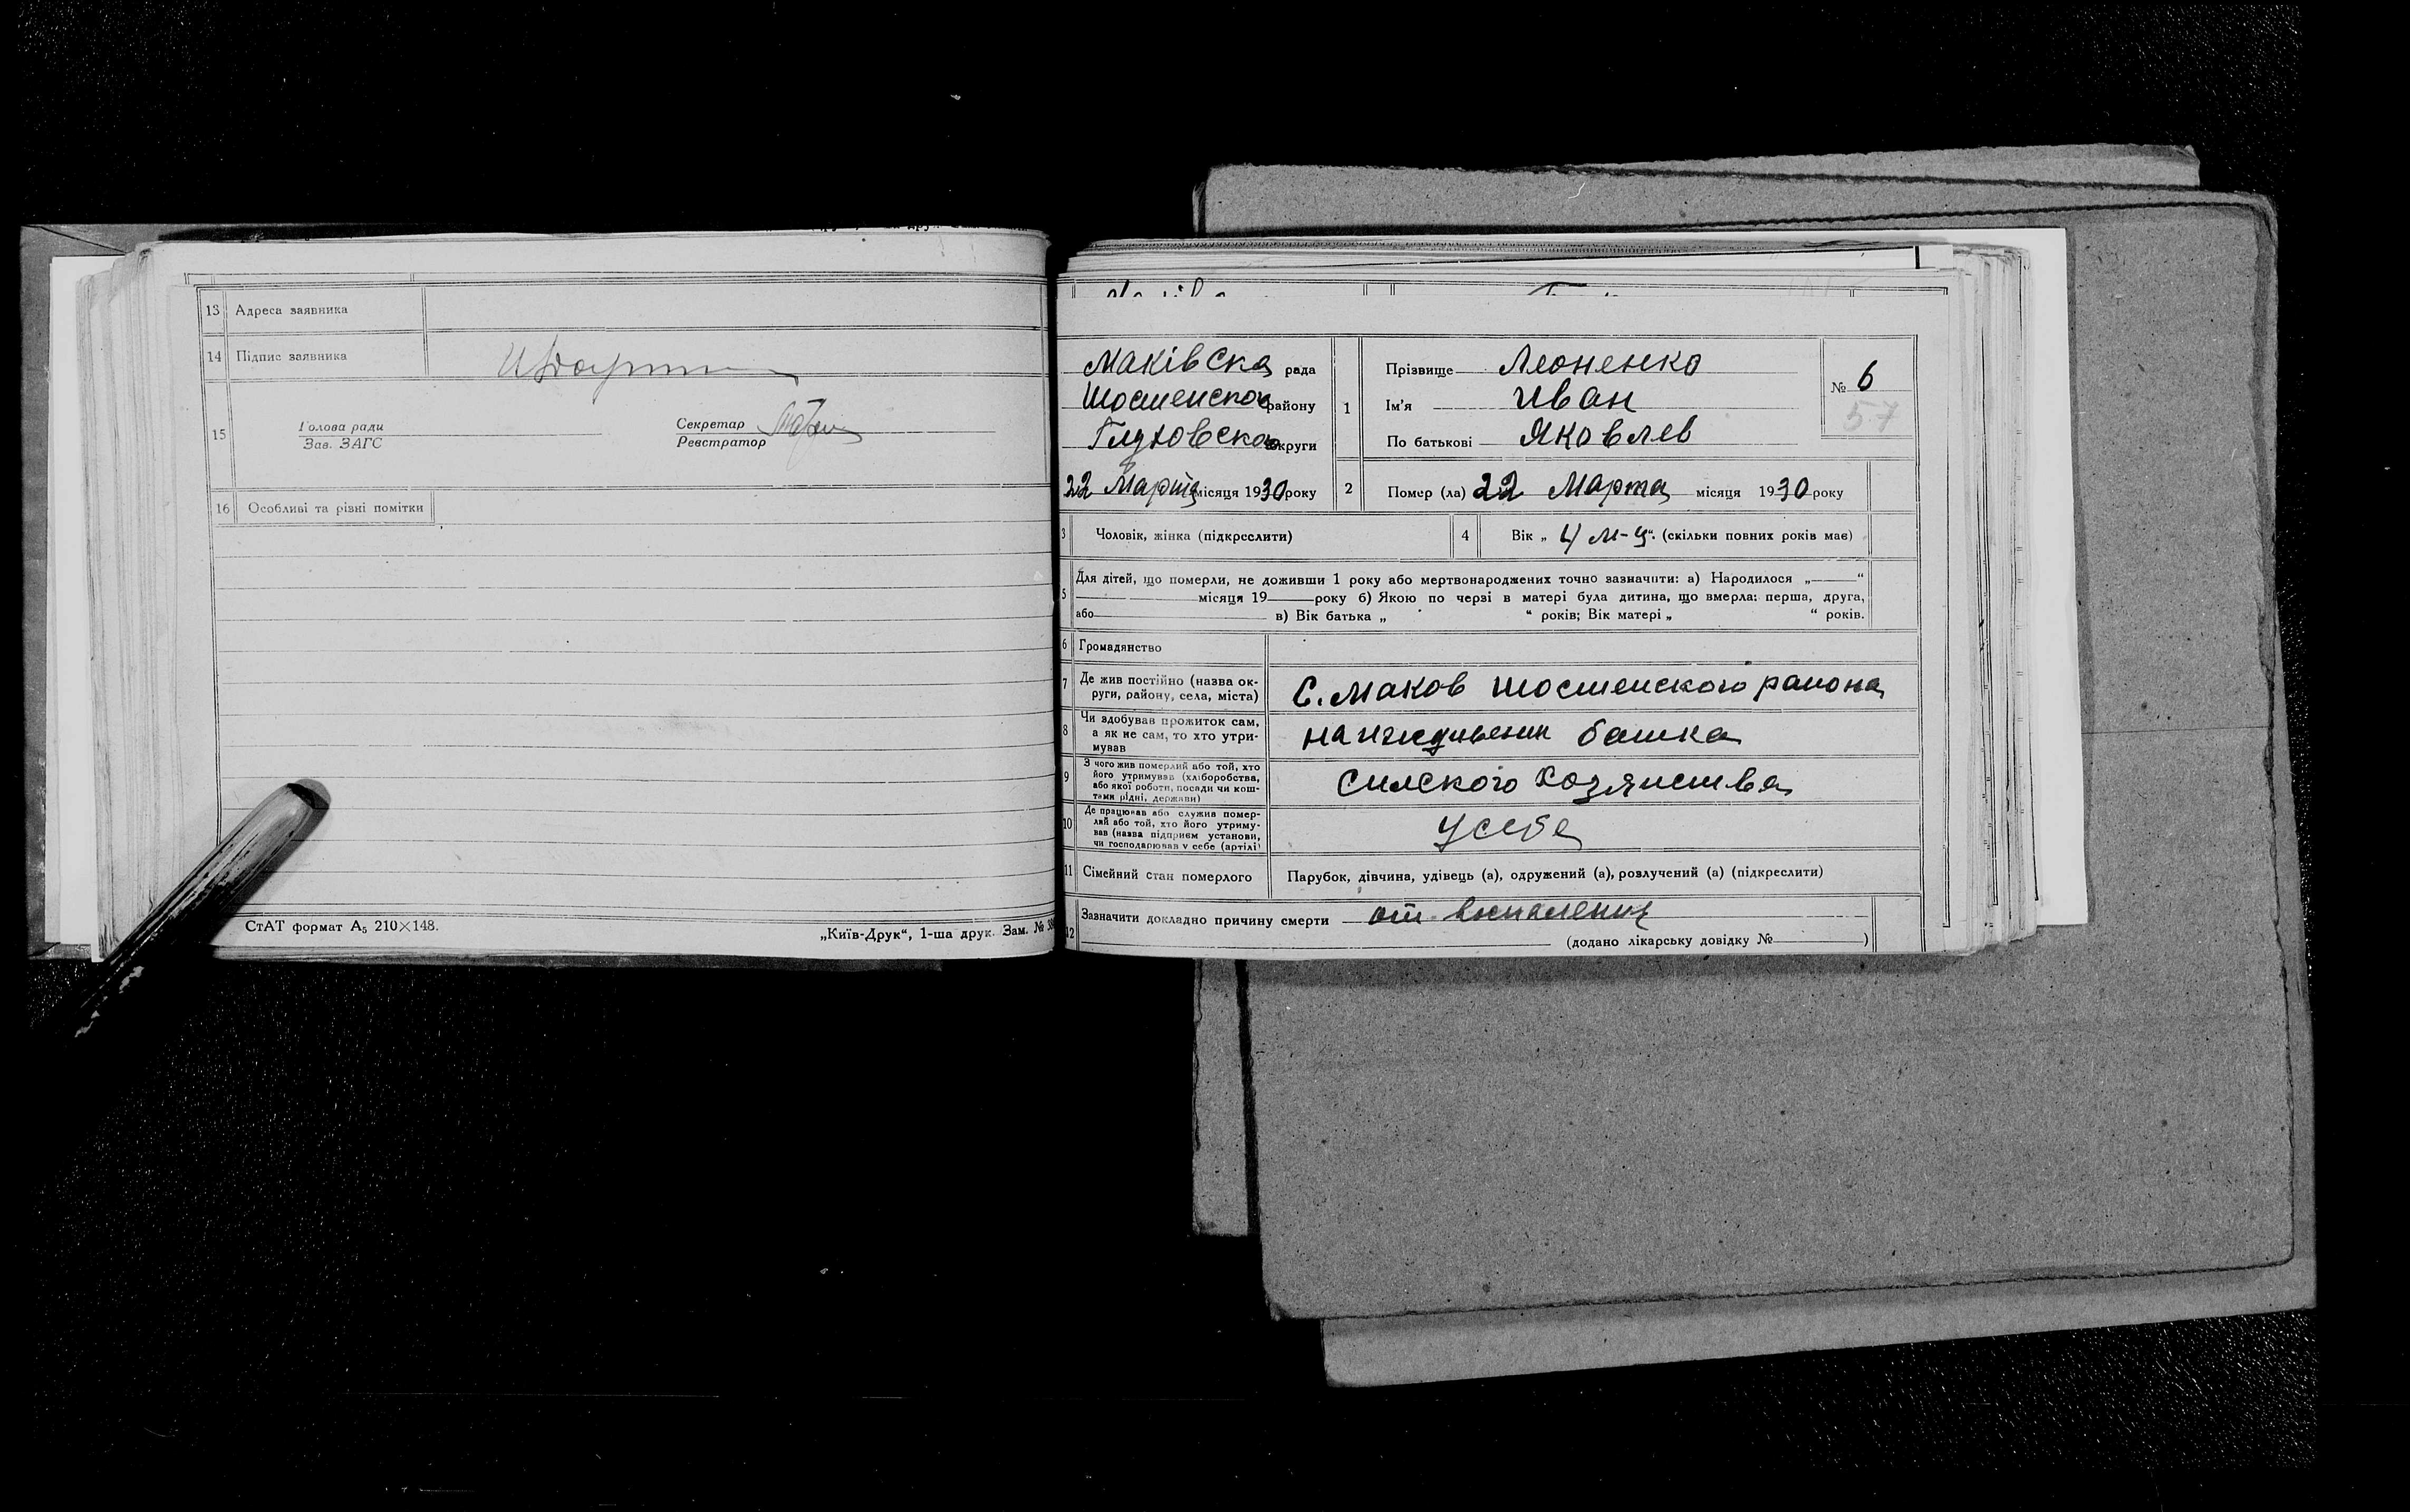 13 Адреса заявника
14 Підпис заявника
15 Голова ради
Зав. ЗАГС
Секретар
Реєстратор
16 Особливі та різні помітки
СтАТ формат А₅ 210×148.
„Київ-Друк“, 1-ша друк. Зам. №
Маківска рада
Шостенского району
Глуховскаго округи
22 Марта місяця 1930 року
1 Прізвище Леоненко
Ім’я Иван
По батькові Яковлев
№ 6
57
2 Помер (ла) 22 Марта місяця 1930 року
3 Чоловік, жінка (підкреслити)
4 Вік „ 4 м-ц“. (скільки повних років має)
5 Для дітей, що померли, не доживши 1 року або мертвонароджених точно зазначити: а) Народилося „ “
місяця 19 року б) Якою по черзі в матері була дитина, що вмерла: перша, друга,
або в) Вік батька „ “ років; Вік матері „ “ років.
6 Громадянство
7 Де жив постійно (назва ок-
руги, району, села, міста)
С. Маков Шостенского раиона
8 Чи здобував прожиток сам,
а як не сам, то хто утри-
мував
на иждивении батка
9 З чого жив померлий або той, хто
його утримував (хліборобства,
або якої роботи, посади чи кош-
тами рідні, держави)
Силского Хозяиства
10 Де працював або служив помер-
лий або той, хто його утриму-
вав (назва підприєм установи,
чи господарював у себе (артілі)
у себе
11 Сімейний стан померлого
Парубок, дівчина, удівець (а), одружений (а), розлучений (а) (підкреслити)
12 Зазначити докладно причину смерти от воспаления
(додано лікарську довідку № )